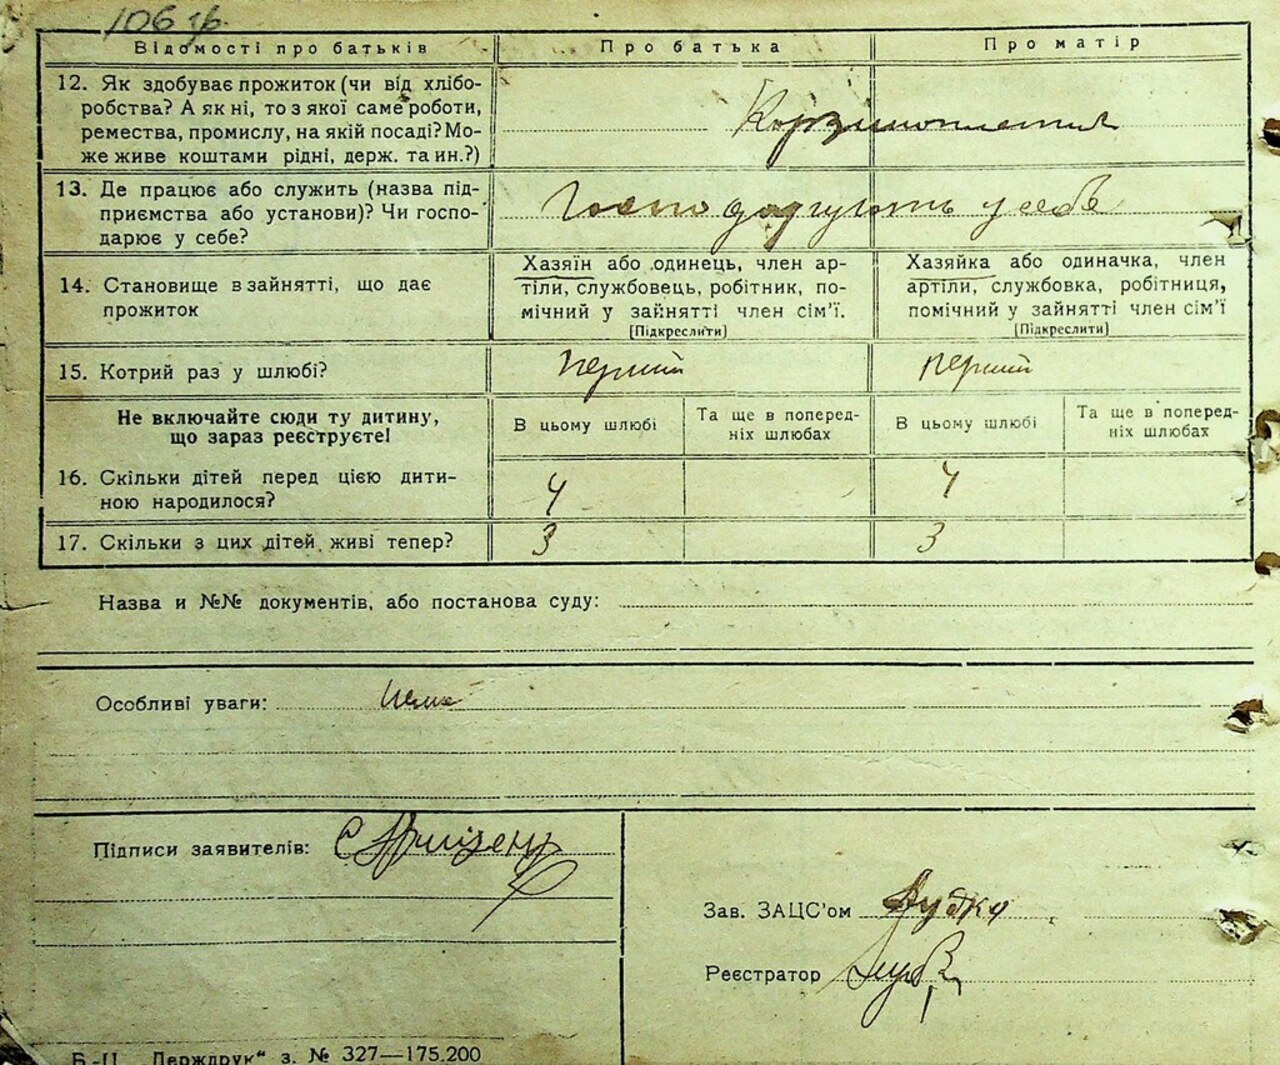 106 гр.
Відомості про батьків
Про батька
Про матір
12. Як здобуває прожиток (чи від хлібо-
робства? А як ні, то з якої саме роботи,
ремества, промислу, на якій посаді? Мо-
же живе коштами рідні, держ. та ин.?)
Корзиноплетіння
13. Де працює або служить (назва під-
приємства або установи)? Чи госпо-
дарює у себе?
Господарують у себе
14. Становище в зайнятті, що дає
прожиток
Хазяїн або одинець, член ар-
тіли, службовець, робітник, по-
мічний у зайнятті член сім'ї.
(Підкреслити)
Хазяйка або одиначка, член
артіли, службовка, робітниця,
помічний у зайнятті член сім'ї
(Підкреслити)
15. Котрий раз у шлюбі?
перший
перший
Не включайте сюди ту дитину,
що зараз реєструєте!
В цьому шлюбі
Та ще в поперед-
ніх шлюбах
В цьому шлюбі
Та ще в поперед-
ніх шлюбах
16. Скільки дітей перед цією дити-
ною народилося?
4
4
17. Скільки з цих дітей живі тепер?
3
3
Назва и №№ документів, або постанова суду:
Особливі уваги: нема
Підписи заявителів:
Зав. ЗАЦС'ом
Реєстратор
Б-Ц „Держдрук“ з. № 327—175.200